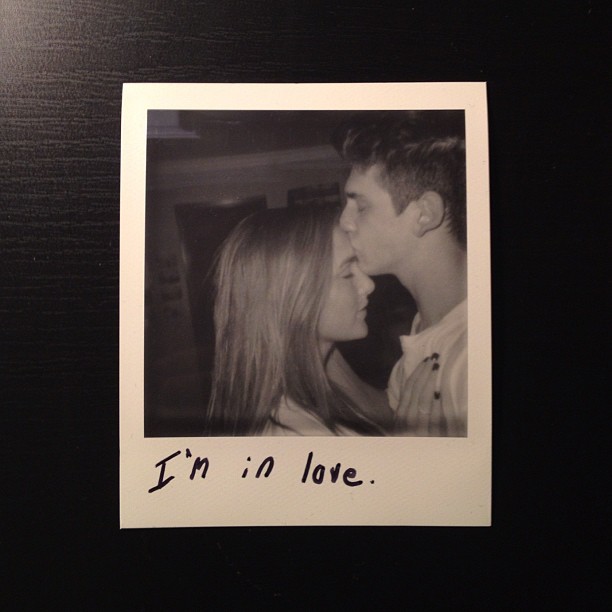 I'm in love.